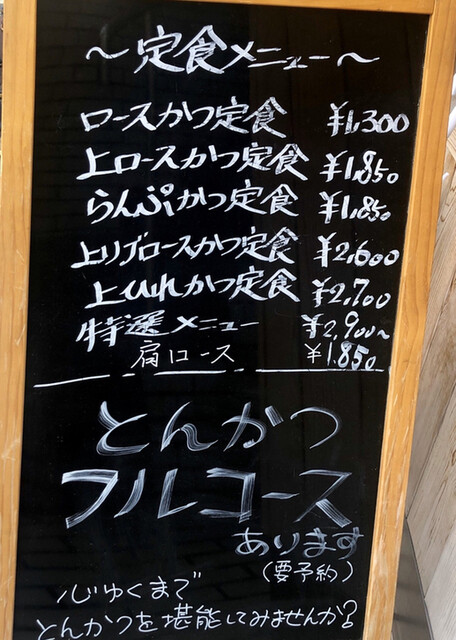 ～定食メニュー～
ロースかつ定食 ¥1,300
上ロースかつ定食 ¥1,850
らんぷかつ定食 ¥1,850
上リブロースかつ定食 ¥2,600
上ひれかつ定食 ¥2,700
特選メニュー ¥2,900～
肩ロース ¥1,850
とんかつ
フルコース
あります
(要予約)
心ゆくまで
とんかつを堪能してみませんか?